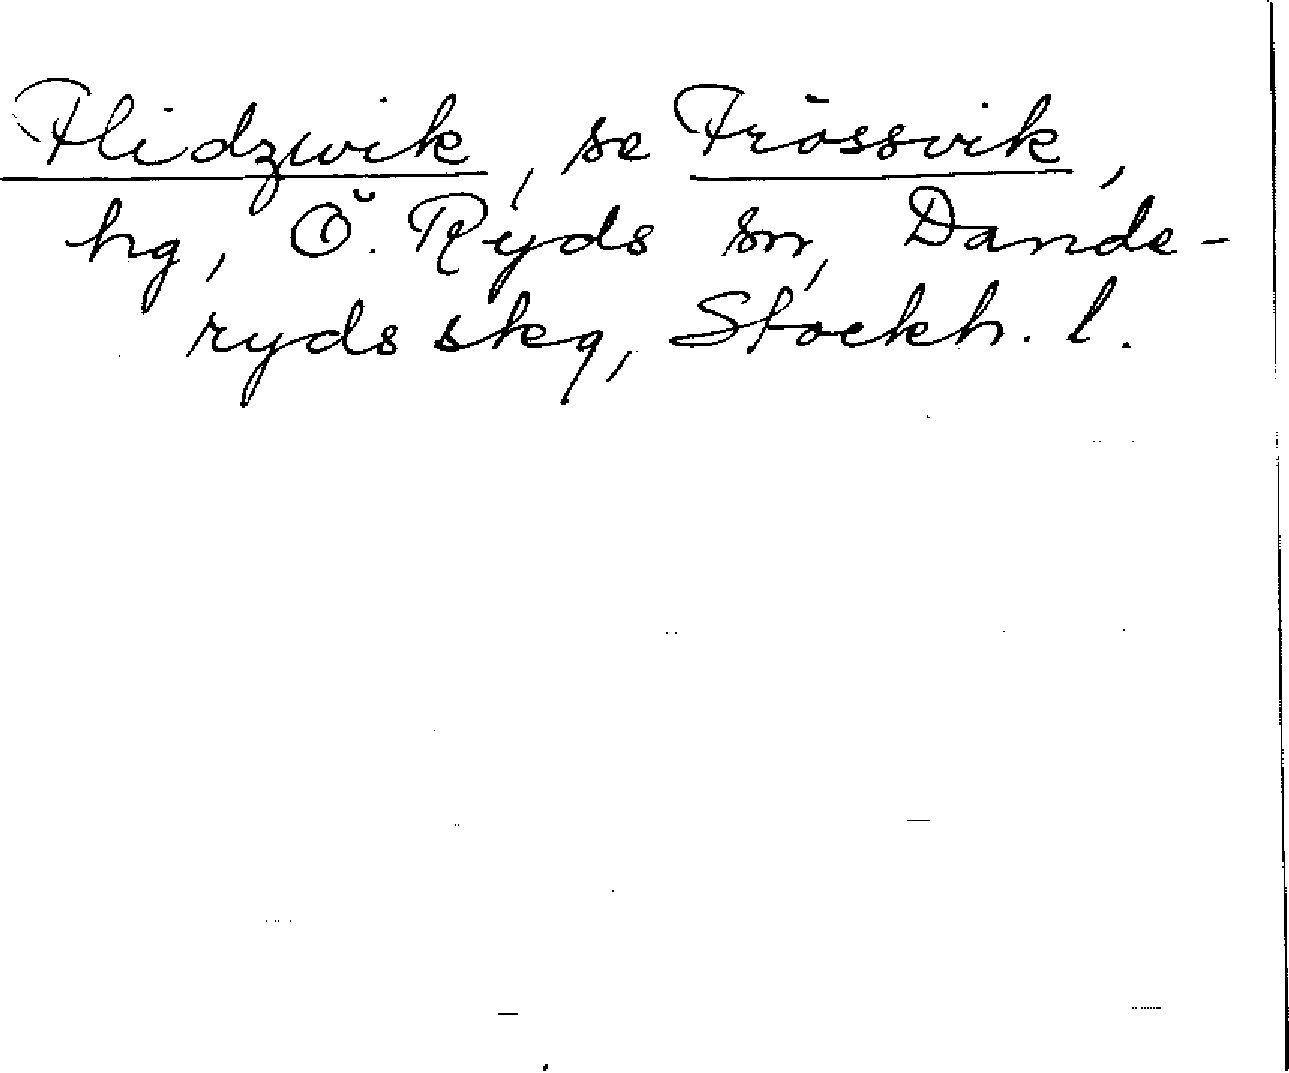 Flidzwik, se Frössvik,
hg, Ö. Ryds sn, Dande-
ryds skg, Stockh. l.